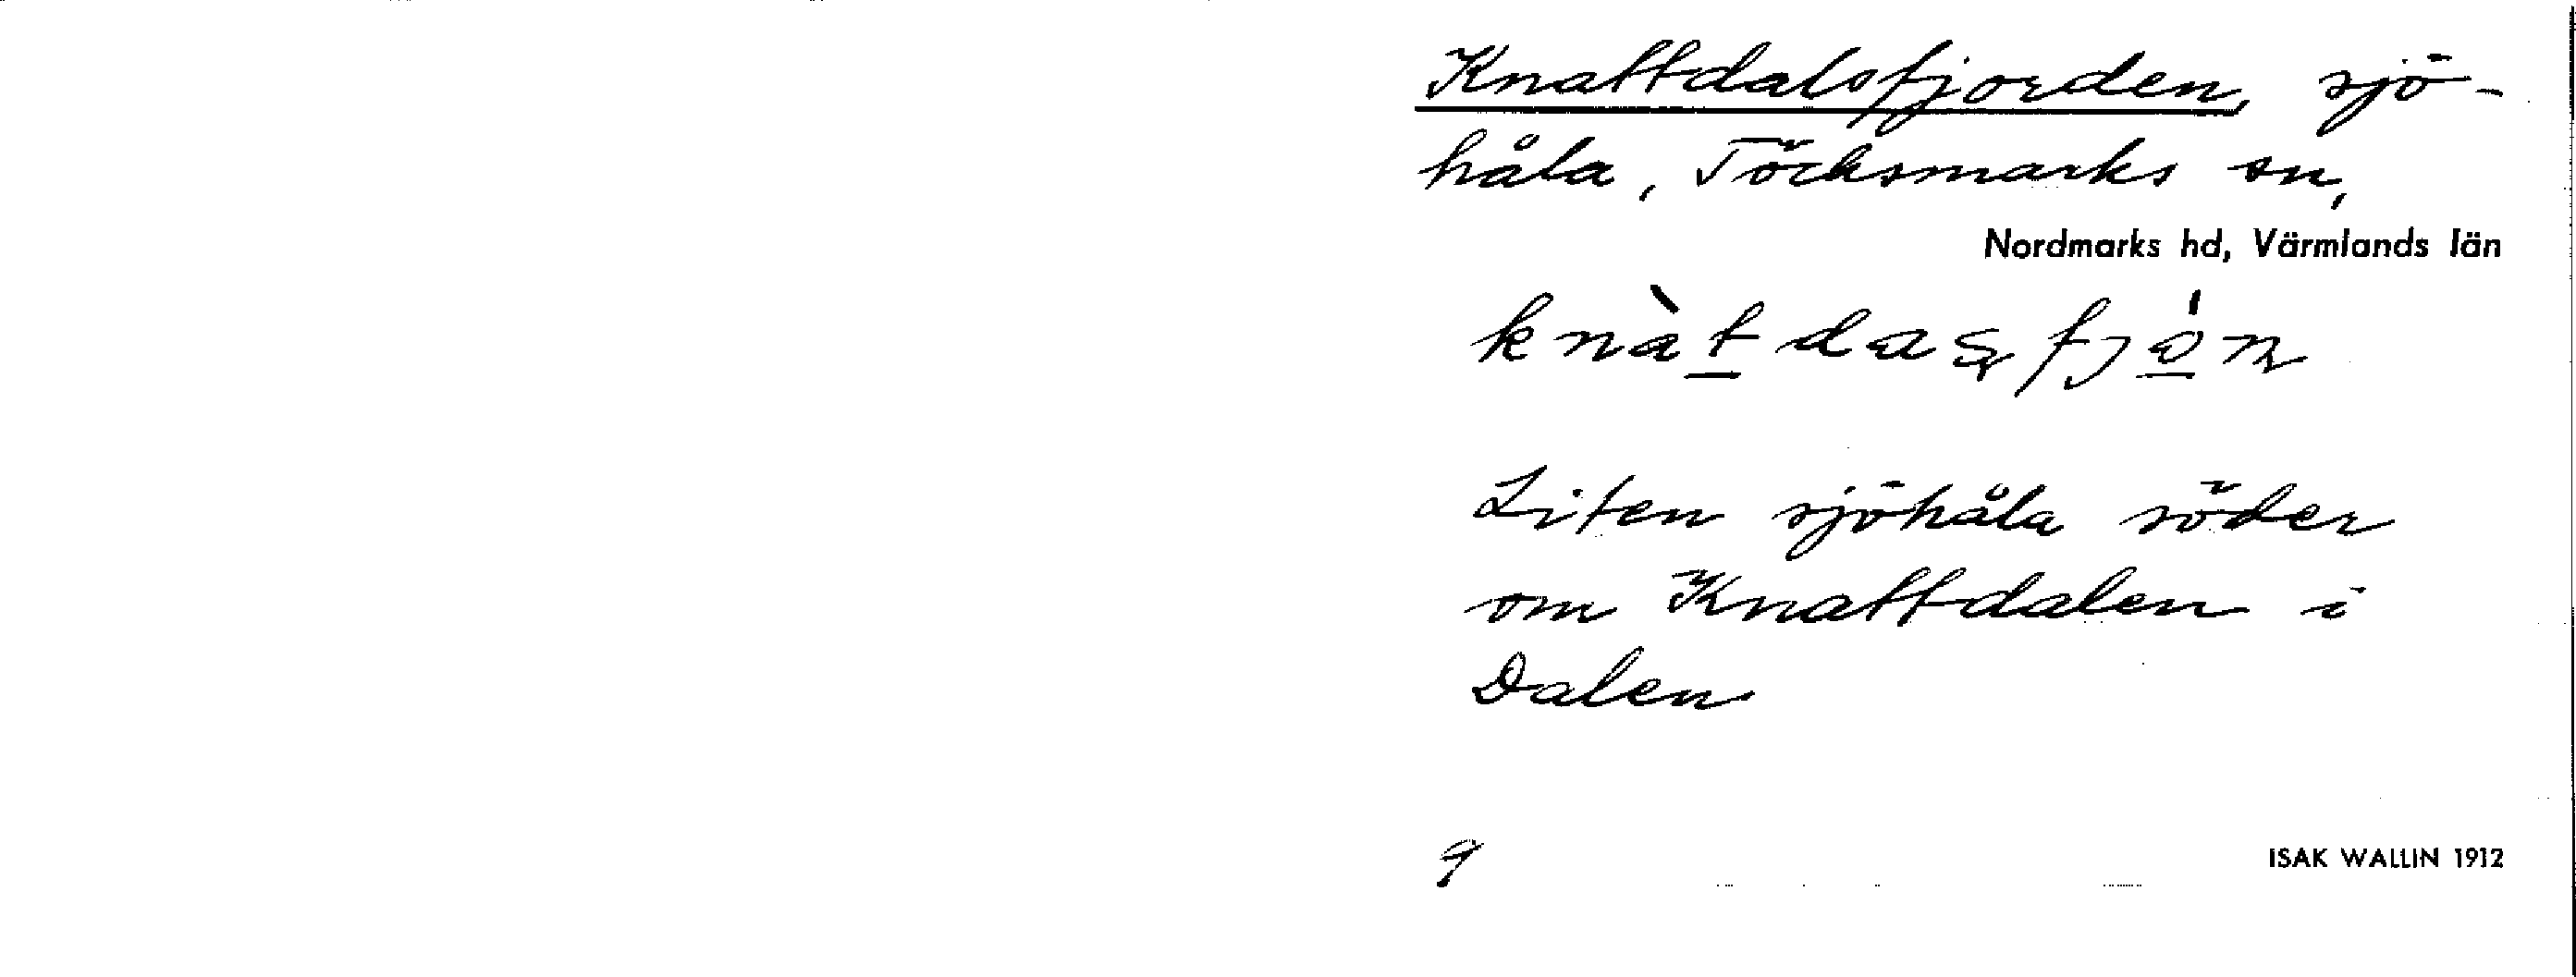 Knattdalsfjorden, sjö-
håla, Töcksmarks sn,
Nordmarks hd, Värmlands län
knàt̲dasfjó̲n
Liten sjöhåla söder
om Knattdalen i
Dalen
9
ISAK WALLIN 1912